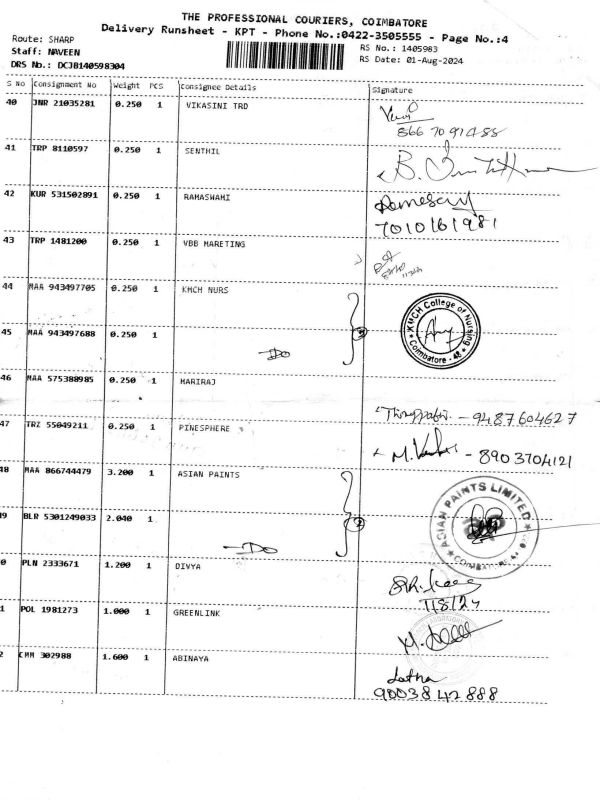 THE PROFESSIONAL COURIERS, COIMBATORE
Delivery Runsheet - KPT - Phone No.:0422-3505555 - Page No.:4
Route: SHARP
Staff: NAVEEN
DRS No.: DCJB140598304
RS No.: 1405983
RS Date: 01-Aug-2024
S No Consignment No Weight PCS Consignee Details Signature
40 JNR 21035281 0.250 1 VIKASINI TRD
866 7091488
41 TRP 8110597 0.250 1 SENTHIL
42 KUR 531502891 0.250 1 RAMASWAMI
7010161981
43 TRP 1481200 0.250 1 VBB MARETING
44 MAA 943497705 0.250 1 KMCH NURS
KMCH College of Nursing Coimbatore - 48
45 MAA 943497688 0.250 1 Do 2
46 MAA 575388985 0.250 1 HARIRAJ
9487604627
47 TRZ 55049211 0.250 1 PINESPHERE
8903704121
48 MAA 866744479 3.200 1 ASIAN PAINTS
ASIAN PAINTS LIMITED
9 BLR 5301249033 2.040 1 Do 2
0 PLN 2333671 1.200 1 DIVYA
1/8/24
1 POL 1981273 1.000 1 GREENLINK
2 CMM 302988 1.600 1 ABINAYA
Latha
90038 42 888